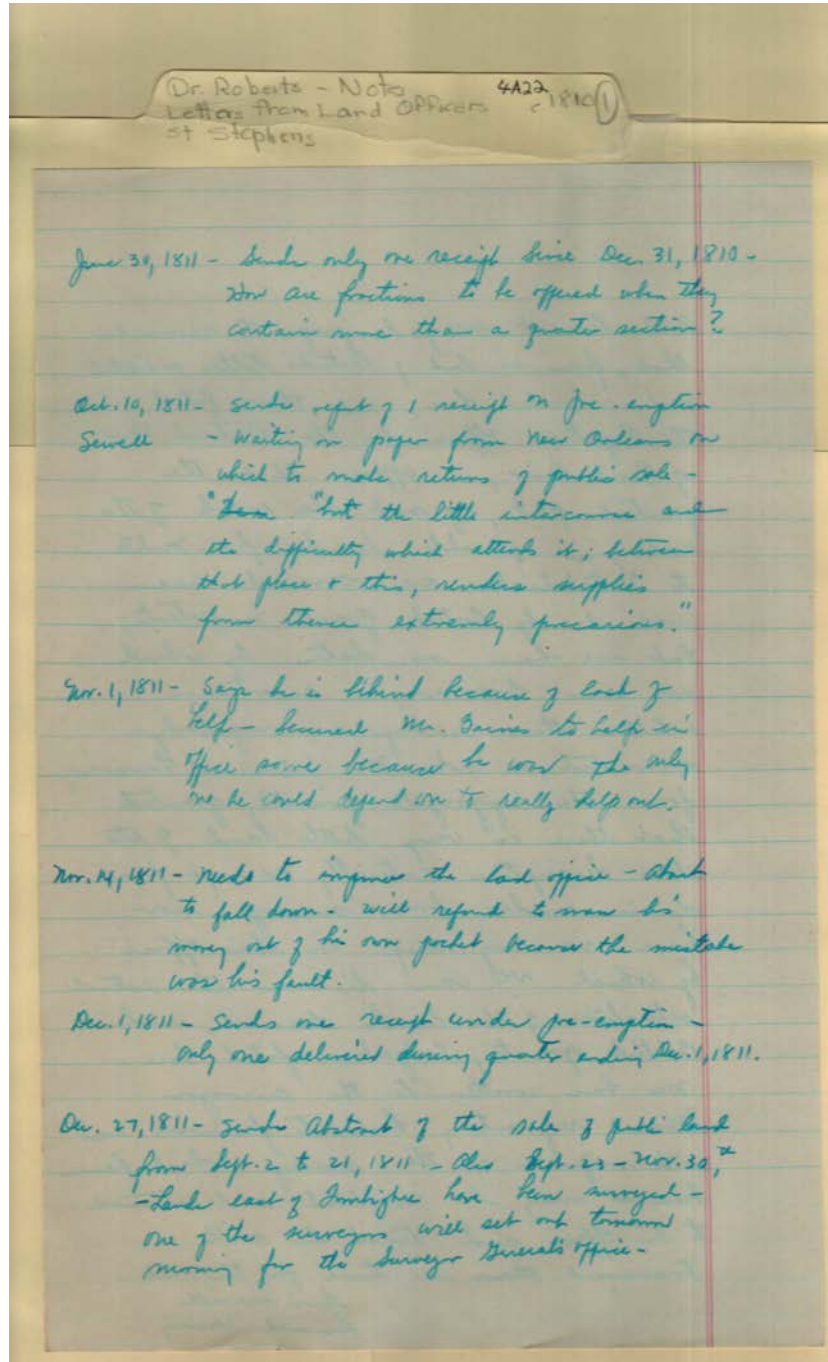 Dr. Roberts - Note 4A22
Letters from Land Officers c 1810 1
St Stephens
June 30, 1811 - Sends only one receipt since Dec. 31, 1810 -
How are fractions to be offered when they
contain more than a quarter section?
Oct. 10, 1811 - sends report of 1 receipt on pre-emption
Sewell - Waiting on paper from New Orleans on
which to make returns of public sale -
"but the little intercourse and
the difficulty which attends it; between
that place + this, renders supplies
from thence extremely precarious."
Nov. 1, 1811 - Says he is behind because of lack of
help - Secured Mr. Gaines to help in
office some because he was the only
one he could depend on to really help out.
Nov. 14, 1811 - needs to improve the land office - about
to fall down - will refund to man his
money out of his own pocket because the mistake
was his fault.
Dec. 1, 1811 - Sends one receipt under pre-emption -
only one delivered during quarter ending Dec. 1, 1811.
Dec. 27, 1811 - sends Abstract of the sale of public land
from Sept. 2 to 21, 1811 - Also Sept. 23 - Nov. 30,
- Lands east of Tombigbee have been surveyed -
one of the surveyors will set out tomorrow
morning for the Surveyor General's office -